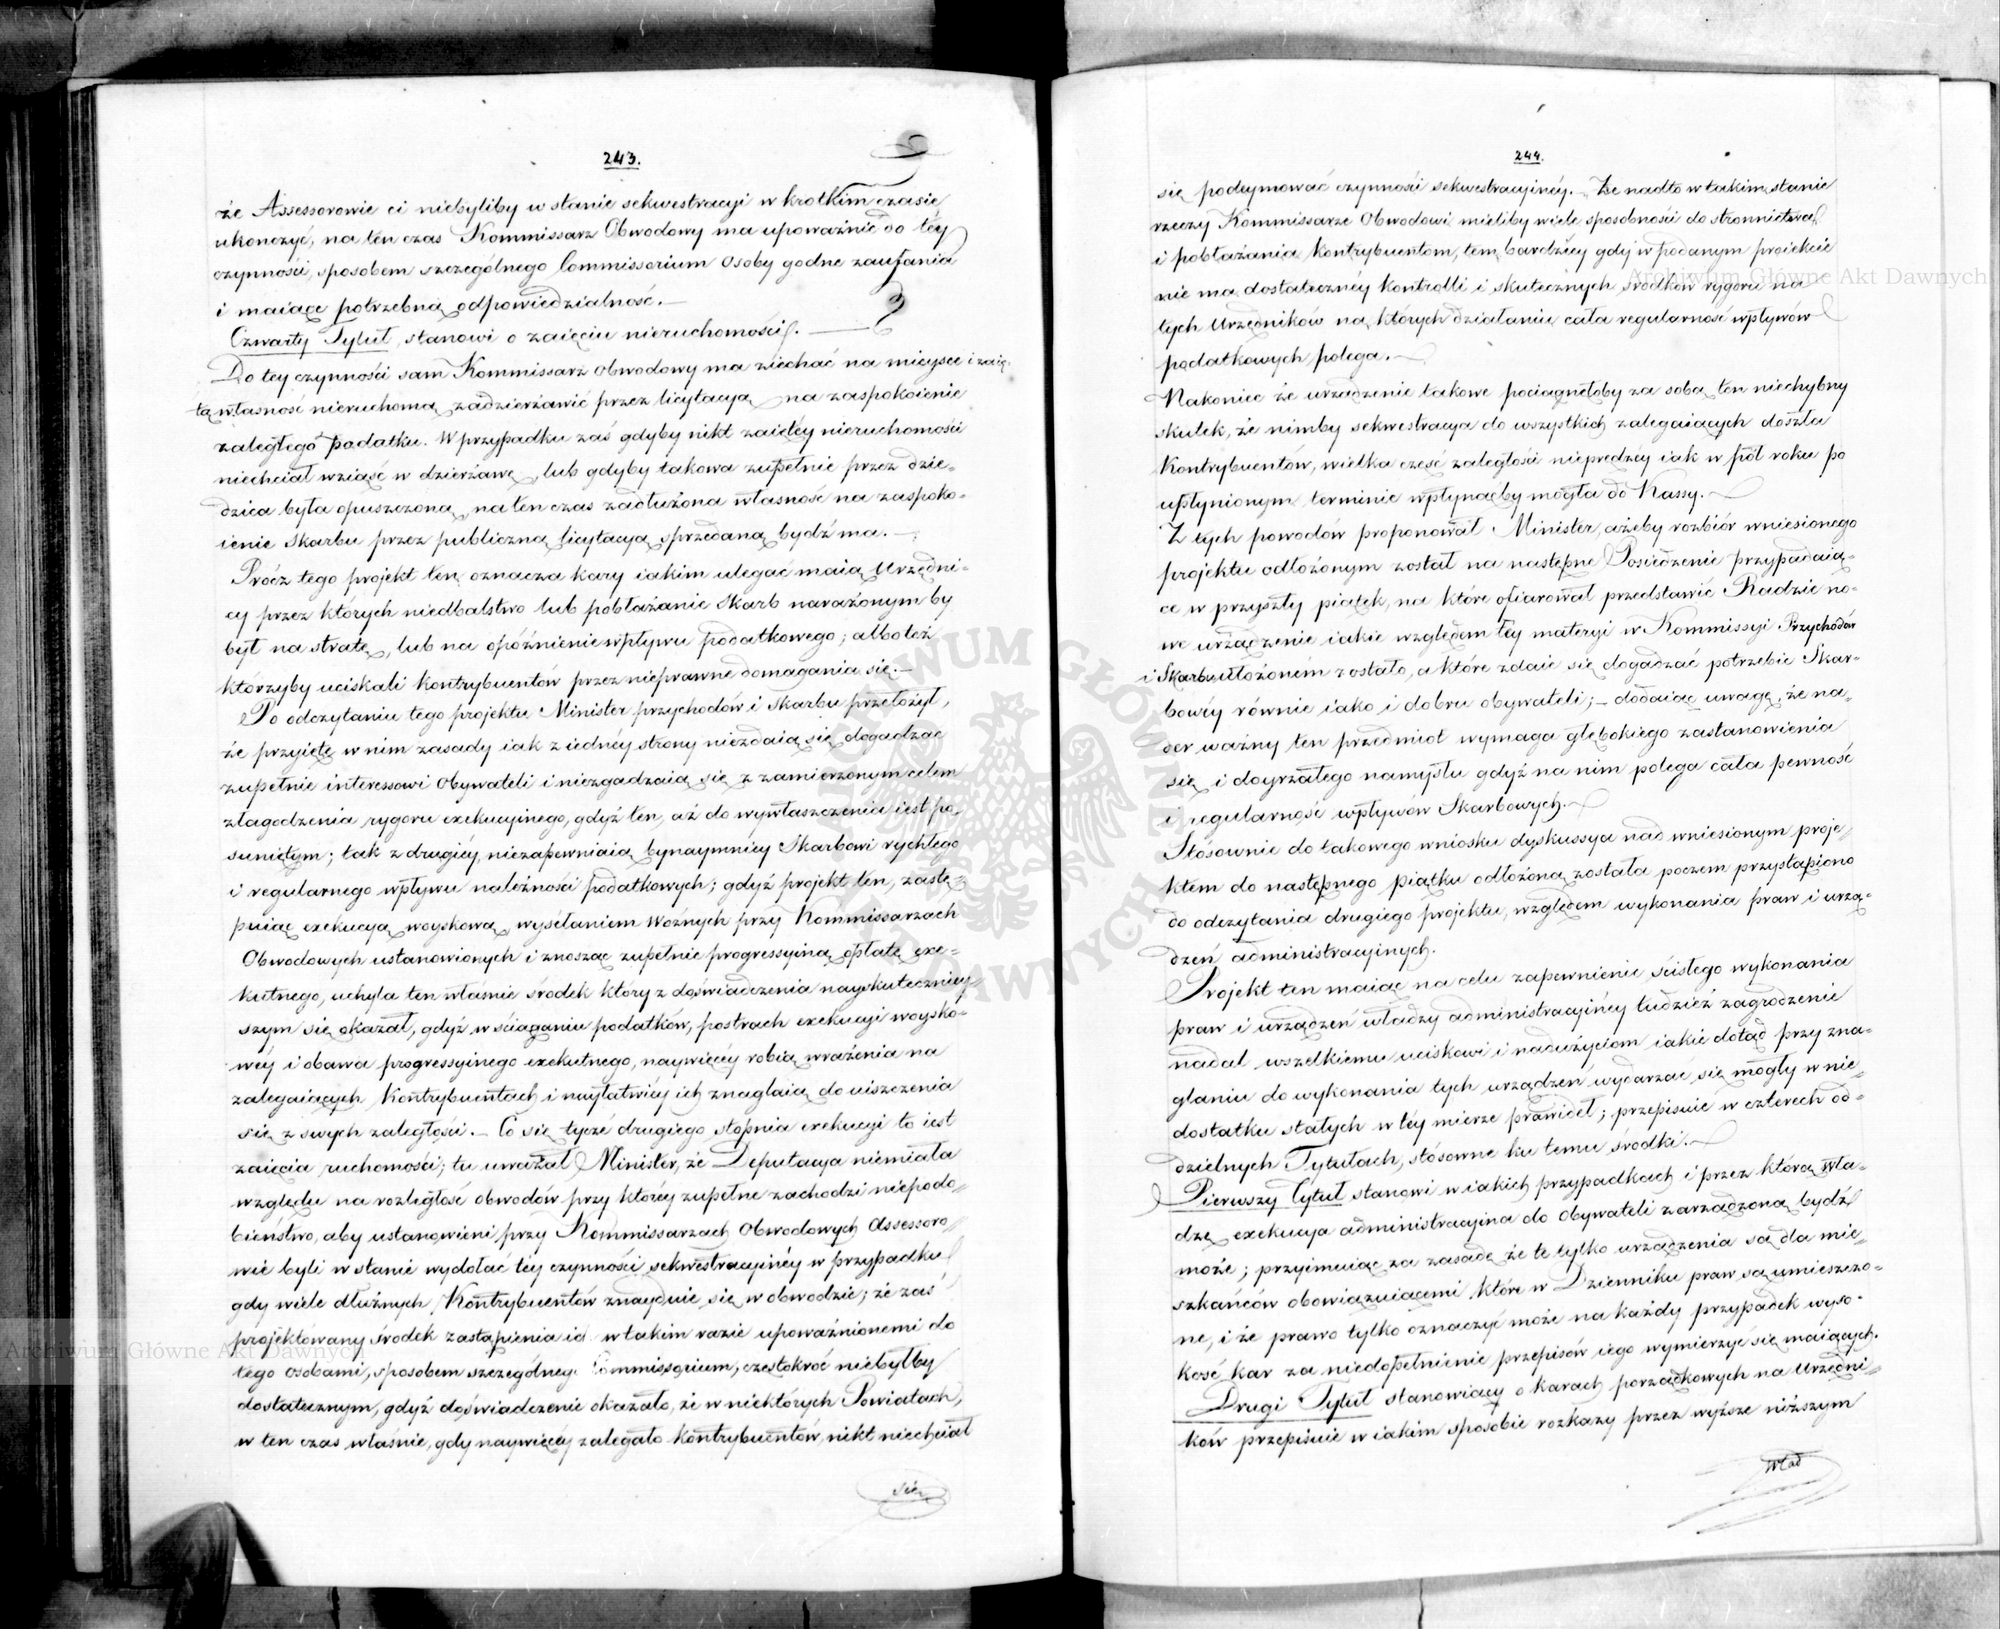 243.
że Assessorowie ci niebyliby w stanie sekwestracyi w krotkim czasie
ukonczyć, na ten czas Kommissarz Obwodowy ma upoważnić do téy
czynności, sposobem szczególnego Commissorium osoby godne zaufania
i maiące potrzebną odpowiedzialność.—
Czwarty Tytuł, stanowi o zaięciu nieruchomości.—
Do tey czynności sam Kommissarz obwodowy ma ziechać na mieysce i zaię-
tą własność nieruchomą zadzierżawić przez licytacyą na zaspokoienie
zaległego podatku. W przypadku zaś gdyby nikt zaiętéy nieruchomości
niechciał wziąść w dzierżawę, lub gdyby takowa zupełnie przez dzie-
dzica była opuszczoną, na ten czas zadłużona własność na zaspoko-
ienie Skarbu przez publiczną licytacyą sprzedaną bydź ma.—
Prócz tego projekt ten oznacza kary iakim ulegać maią Urzędni-
cy przez których niedbalstwo lub pobłażanie Skarb narażonym by
był na stratę, lub na opóźnienie wpływu podatkowego; albo też
którzyby uciskali kontrybuentów przez nieprawne domagania się.—
Po odczytaniu tego projektu Minister przychodów i Skarbu przełożył,
że przyięte w nim zasady iak z iednéy strony niezdaią się dogadzać
zupełnie interessowi Obywateli i niezgadzaią się z zamierzonym celem
złagodzenia rygoru exekucyinego, gdyż ten, aż do wywłaszczenia iest po-
suniętym; tak z drugiéy, niezapewniaią bynaymniéy Skarbowi rychłego
i regularnego wpływu należności podatkowych; gdyż projekt ten, zastę-
puiąc exekucyą woyskową wysełaniem Woźnych przy Kommissarzach
Obwodowych ustanowionych i znosząc zupełnie progressyiną opłatę exe-
kutnego, uchyla ten właśnie środek który z doświadczenia nayskuteczniey-
szym się okazał, gdyż w ściąganiu podatków, postrach exekucyi woysko-
wéy i obawa progressyinego exekutnego, naywięcéy robią wrażenia na
zalegaiących Kontrybuentach i nayłatwiéy ich znaglaią do uiszczenia
się z swych zaległości.— Co się tycze drugiego stopnia exekucyi to iest
zaięcia ruchomości; tu uważał Minister, że Deputacya niemiała
względu na rozległość obwodów przy któréy zupełne zachodzi niepodo-
bieństwo, aby ustanowieni przy Kommissarzach Obwodowych Assessoro-
wie byli w stanie wydołać téy czynności sekwestracyinéy w przypadku
gdy wiele dłużnych Kontrybuentów znayduie się w obwodzie; że zaś
projektowany środek zastąpienia ich w takim razie upoważnionemi do
tego osobami, sposobem szczególnego Commissorium, częstokroć niebyłby
dostatecznym, gdyż doświadczenie okazało, że w niektórych Powiatach,
w ten czas właśnie, gdy naywięcéy zalegało kontrybuentów, nikt niechciał
się
244.
się podeymować czynności sekwestracyinéy.— Że nadto w takim stanie
rzeczy Kommissarze Obwodowi mieliby wiele sposobności do stronnictwa
i pobłażania Kontrybuentom, tem bardziéy gdy w podanym proiekcie
nie ma dostatecznéy kontrolli i skutecznych środków rygoru na
tych Urzędników na których działaniu cała regularność wpływów
podatkowych polega.—
Nakoniec że urządzenie takowe pociągnęłoby za sobą ten niechybny
skutek, że nimby sekwestracya do wszystkich zalegaiących doszła
Kontrybuentów, wielka część zaległości nieprędzéy iak w pół roku po
upłynionym terminie wpłynąćby mogła do Kassy.—
Z tych powodów proponował Minister, ażeby rozbiór wniesionego
projektu odłożonym został na następne Posiedzenie przypadaią-
ce w przyszły piątek, na które ofiarował przedstawić Radzie no-
we urządzenie iakie względem téy materyi w Kommissyi Przychodów
i Skarbu ułożonem zostało, a które zdaie się dogadzać potrzebie Skar-
bowéy równie iako i dobru obywateli;— dodaiąc uwagę, że na-
der ważny ten przedmiot wymaga głębokiego zastanowienia
się i doyrzałego namysłu gdyż na nim polega cała pewność
i regularność wpływów Skarbowych.—
Stósownie do takowego wniosku dyskussya nad wniesionym proje-
ktem do następnego piątku odłożoną została poczem przystąpiono
do odczytania drugiego projektu, względem wykonania praw i urzą-
dzeń administracyinych.
Projekt ten maiąc na celu zapewnienie ścisłego wykonania
praw i urządzeń władzy administracyinéy tudzież zagrodzenie
nadal wszelkiemu uciskowi i nadużyciom iakie dotąd przy zna-
glaniu do wykonania tych urządzeń wydarzać się mogły w nie-
dostatku stałych w téy mierze prawideł; przepisuie w czterech od-
dzielnych Tytułach, stósowne ku temu środki.—
Pierwszy Tytuł stanowi w iakich przypadkach i przez którą Wła-
dzę exekucya administracyina do Obywateli zarządzoną bydź
może; przyimuiąc za zasadę że te tylko urządzenia są dla mie-
szkańców obowiązuiącemi które w Dzienniku praw są umieszczo-
ne, i że prawo tylko oznaczyć może na każdy przypadek wyso-
kość kar za niedopełnienie przepisów iego wymierzyć się maiących.
Drugi Tytuł stanowiący o karach porządkowych na Urzędni-
ków przepisuie w iakim sposobie rozkazy przez wyższe niższym
Wład
Archiwum Główne Akt Dawnych
Archiwum Główne Akt Dawnych
ARCHIWUM GŁÓWNE AKT DAWNYCH